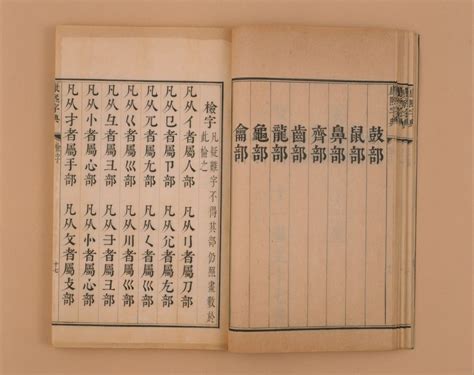 鼓部
鼠部
鼻部
齊部
齒部
龍部
龜部
龠部
檢字 凡疑難字不得其部仍照畫數於此檢之
凡从亻者屬人部 凡从刂者屬刀部
凡从㔾者屬卩部 凡从尣者屬尢部
凡从兀者屬尢部 凡从𡿨者屬巛部
凡从巜者屬巛部 凡从川者屬巛部
凡从彑者屬彐部 凡从⺕者屬彐部
凡从忄者屬心部 凡从⺗者屬心部
凡从扌者屬手部 凡从攵者屬攴部
康熙字典 檢字